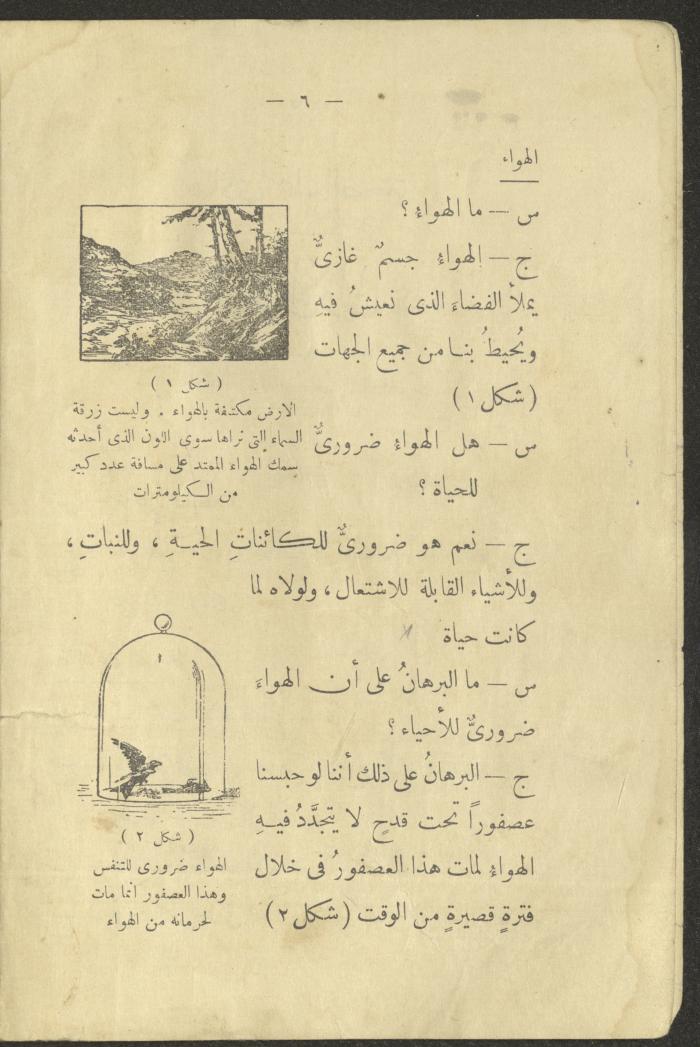 — ٦ —
الهواء
س — ما الهواءُ ؟
ج — الهواءُ جسمٌ غازىٌّ
يملأُ الفضاءَ الذى نعيشُ فيهِ
ويُحيطُ بنا من جميع الجهات
( شكل ١ )
س — هل الهواءُ ضرورىٌّ
للحياة ؟
( شكل ١ )
الارض مكتنفة بالهواء . وليست زرقة
السماء التى نراها سوى اللون الذى أحدثه
سمك الهواء الممتد على مسافة عدد كبير
من الكيلومترات
ج — نعم هو ضرورىٌّ للكائناتِ الحيةِ ، وللنباتِ ،
وللأشياء القابلة للاشتعال ، ولولاه لما
كانت حياة
س — ما البرهانُ على أن الهواءَ
ضرورىٌّ للأحياء ؟
ج — البرهانُ على ذلك أننا لو حبسنا
عصفوراً تحت قدحٍ لا يتجدَّدُ فيهِ
الهواءُ لمات هذا العصفورُ فى خلال
فترةٍ قصيرةٍ من الوقت ( شكل ٢ )
١
( شكل ٢ )
الهواء ضرورى للتنفس
وهذا العصفور انما مات
لحرمانه من الهواء